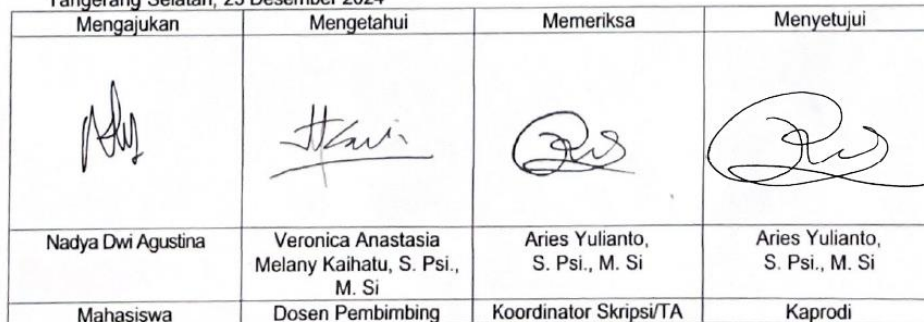 Tangerang Selatan, 23 Desember 2024
Mengajukan Mengetahui Memeriksa Menyetujui
Nadya Dwi Agustina Veronica Anastasia Aries Yulianto, Aries Yulianto,
Melany Kaihatu, S. Psi., S. Psi., M. Si S. Psi., M. Si
M. Si
Mahasiswa Dosen Pembimbing Koordinator Skripsi/TA Kaprodi